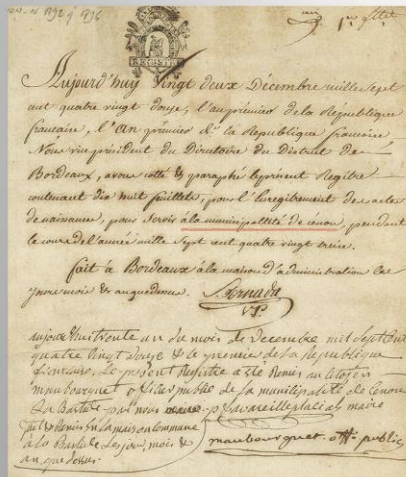 1792 à 1796
1er fllet
REGISTRE
Aujourd'huy vingt deux Décembre mille Sept
cent quatre vingt douze, l'an premier de la République
francaise, l'an premier de la République francaise
Nous vice président du Directoire du District de
Bordeaux, avons cotté & paraphé le présent Registre
contenant dix huit feuillets, pour l'Enregistrement des actes
de naissance, pour servir à la municipalité de cenon, pendant
le cours de l'année mille Sept cent quatre vingt treize.
fait à Bordeaux à la maison d'administration les
jour mois & an que dessus.
V.P.
aujourd'huy trente un du mois de decembre mil sept cent
quatre vingt douze & le premier de la republique
francaise, le present Registre a été Remis au citoyen
maubourguet officier public de la municipalité de Cenon
La Bastide par nous maire
fait & Remis en la maison commune
à la Bastide les jour, mois &
an que dessus
maubourguet off. public